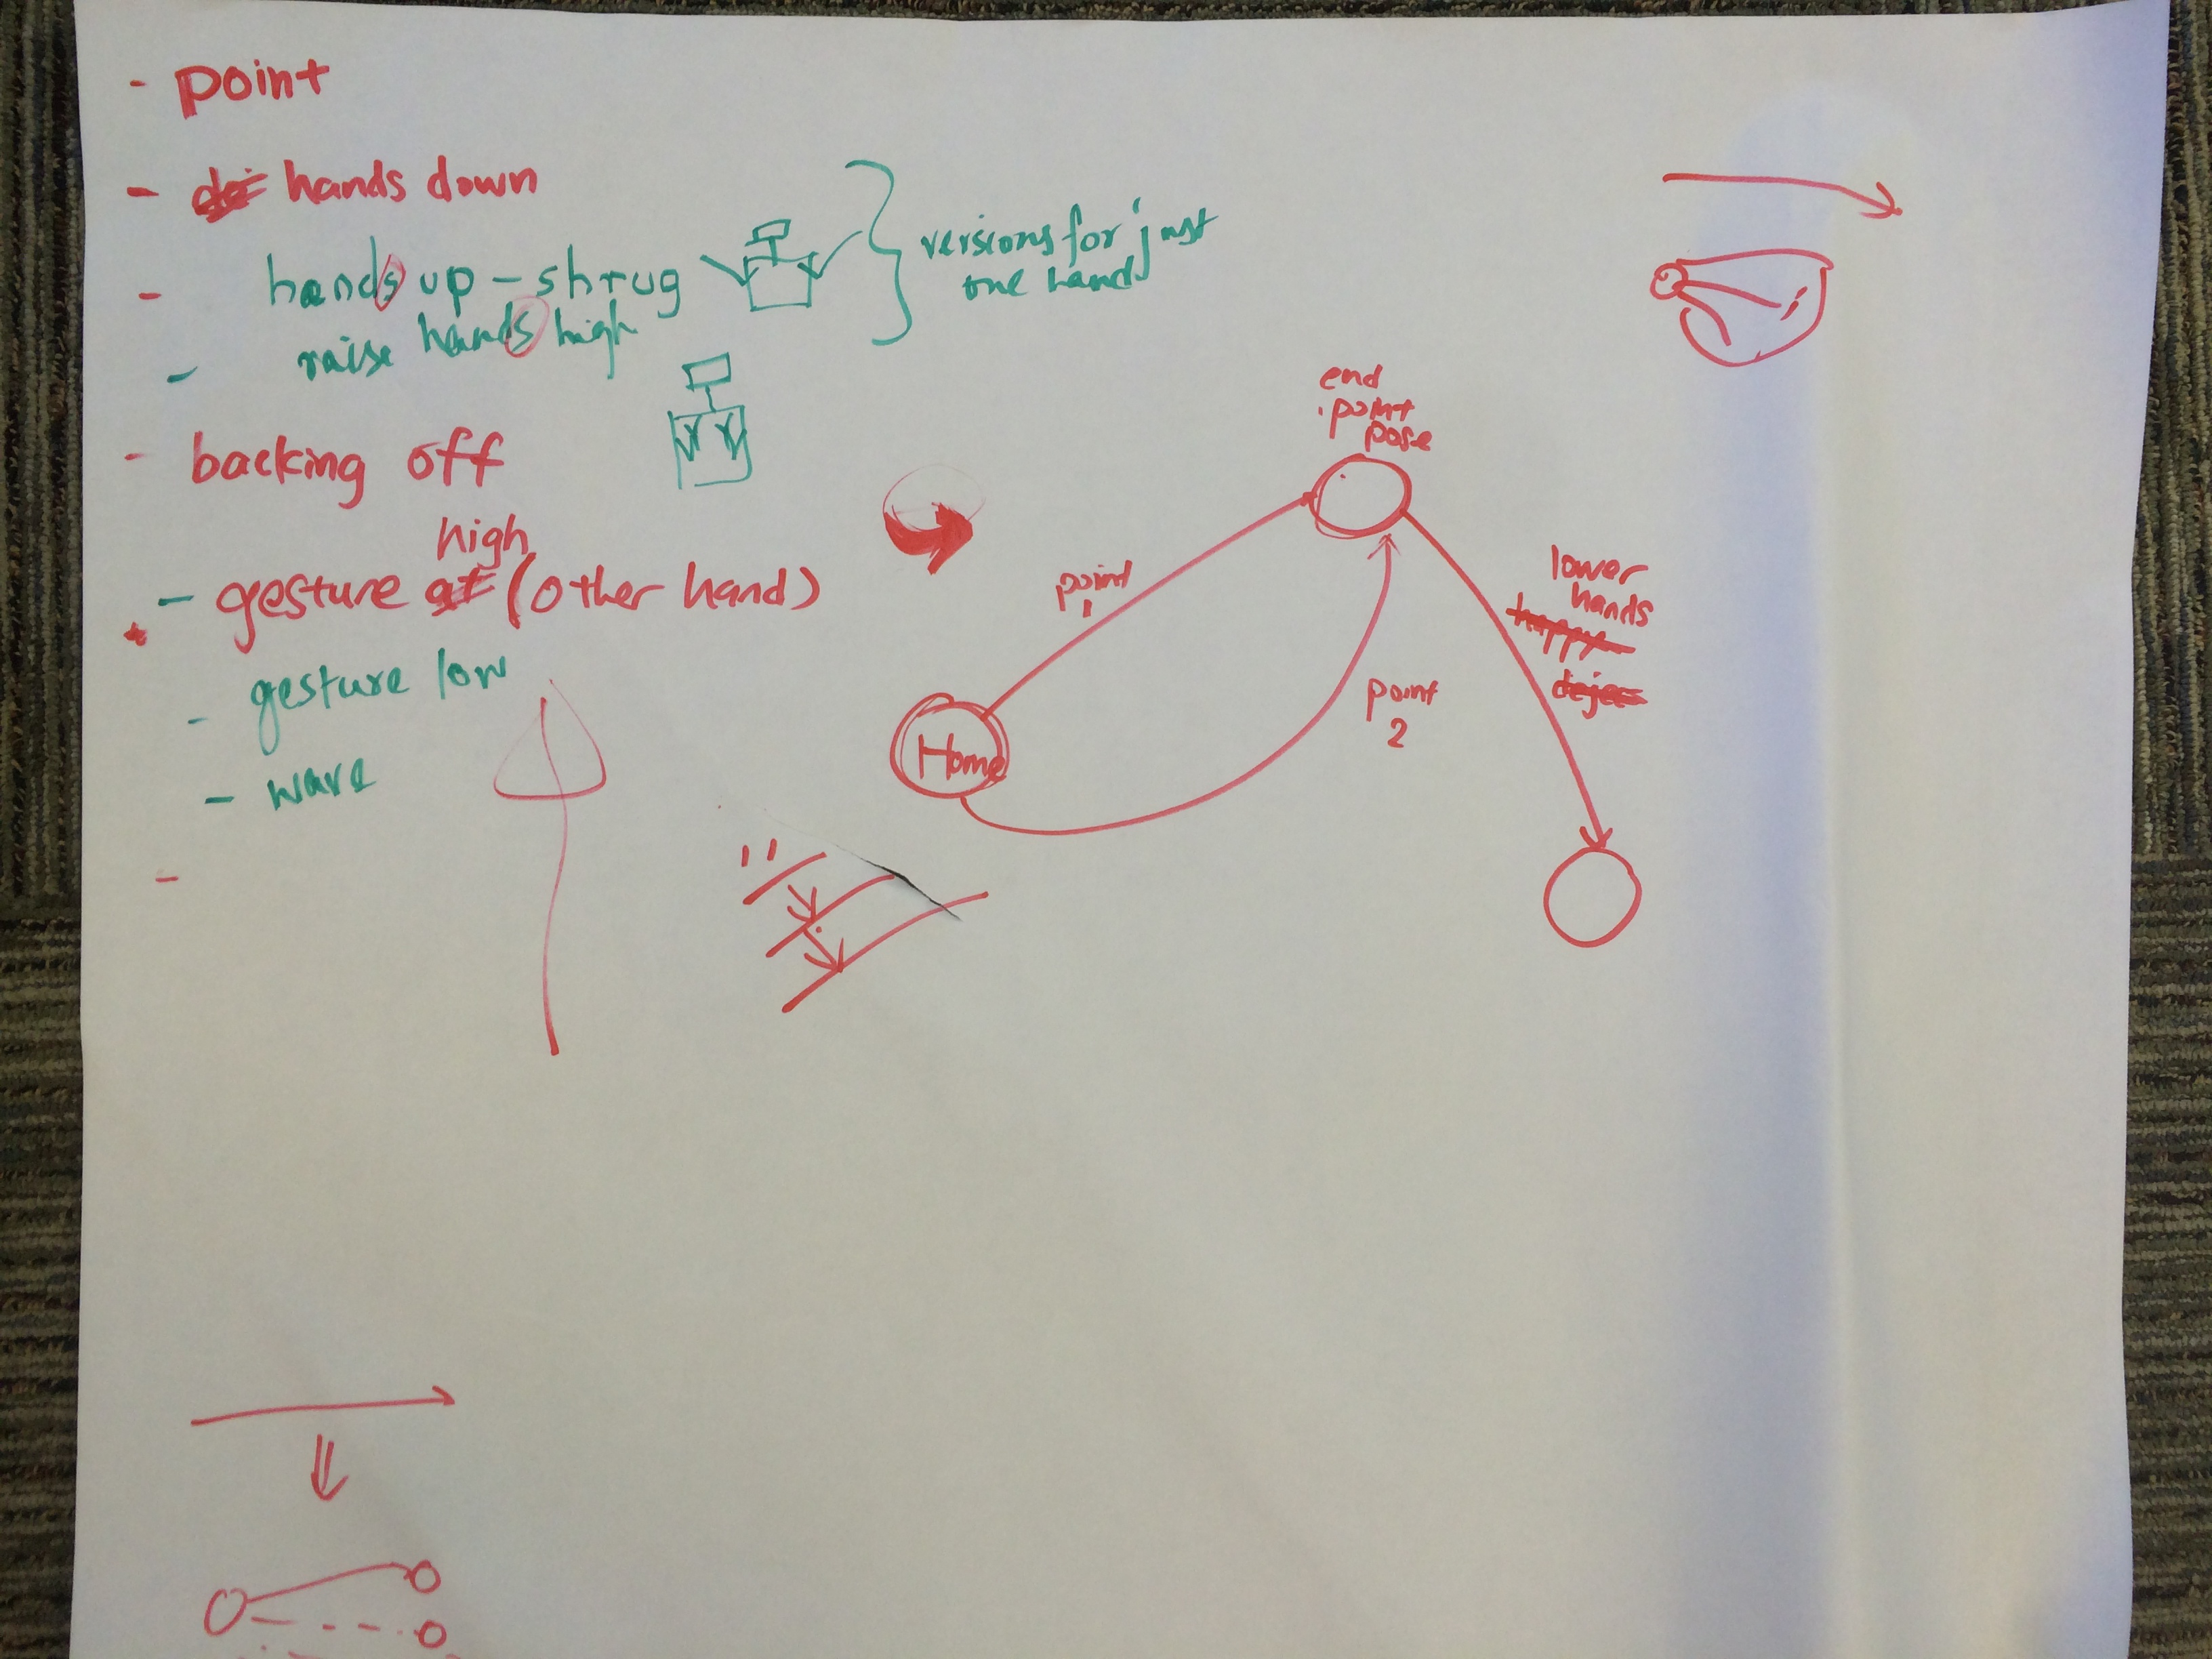 - point
- hands down
- hands up - shrug
versions for just
one hand
- raise hands high
- backing off
high
- gesture at (other hand)
- gesture low
- wave
-
end
point
pose
point
1
lower
hands
happy
Home
point
2